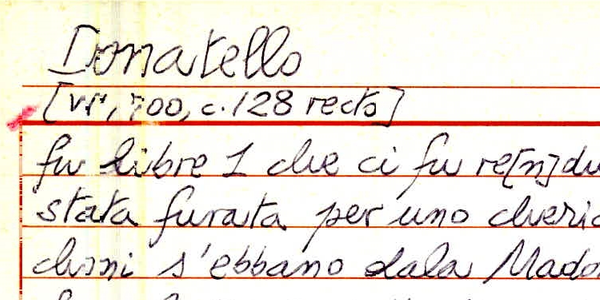 Donatello
[VII, 700, c. 128 recto]
fu libre 1 che ci fu re[n]du
stata furata per uno cheric
choni s'ebbano dala Mado